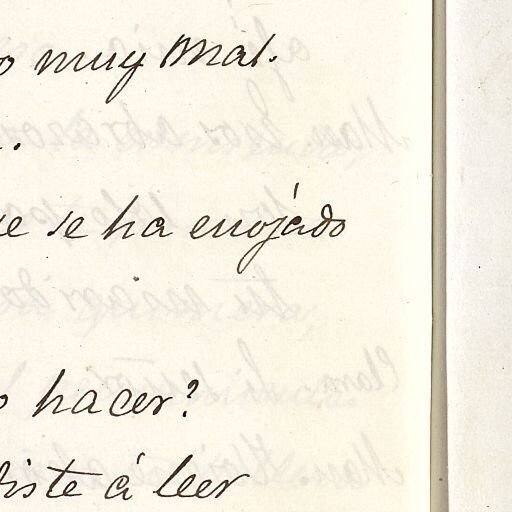 o muy mal.
.
ue se ha enojádo
o hacer?
iste á leer